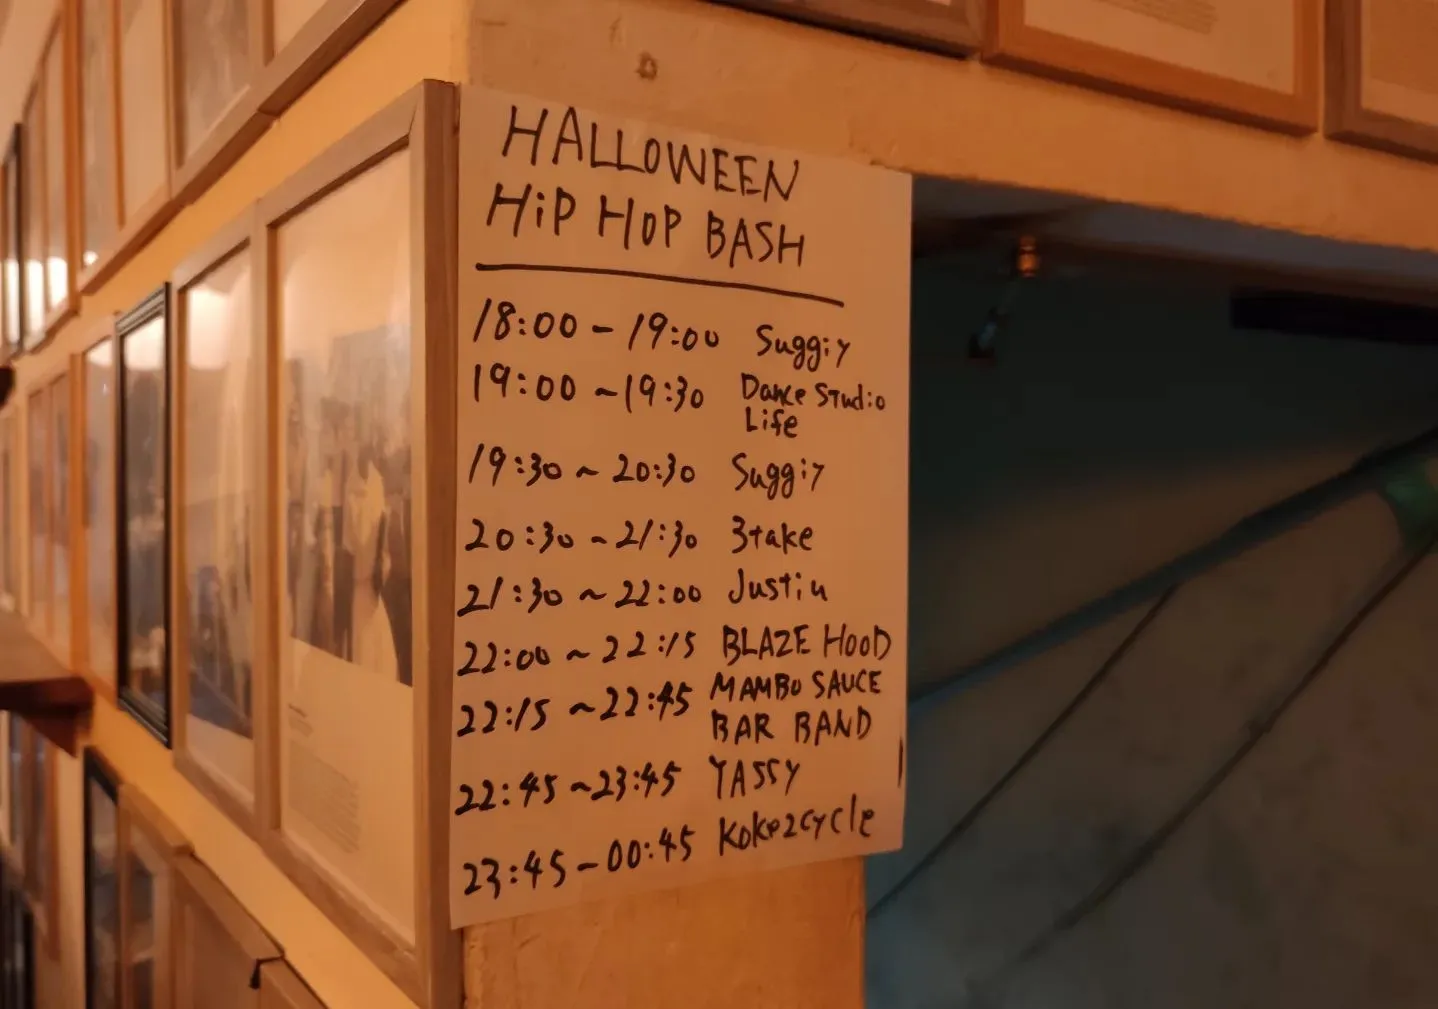 HALLOWEEN
HiP HOP BASH
18:00 - 19:00 Suggiy
19:00 ~ 19:30 Dance Studio
Life
19:30 ~ 20:30 Suggiy
20:30 ~ 21:30 3take
21:30 ~ 22:00 Justin
22:00 ~ 22:15 BLAZE HOOD
22:15 ~ 22:45 MAMBO SAUCE
BAR BAND
22:45 ~ 23:45 YASSY
23:45 - 00:45 Koke2cycle